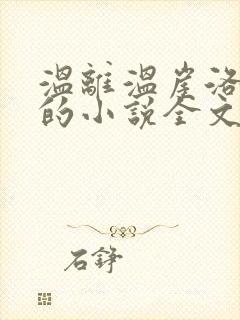 溫離溫崖洛
的小說全文
石錚